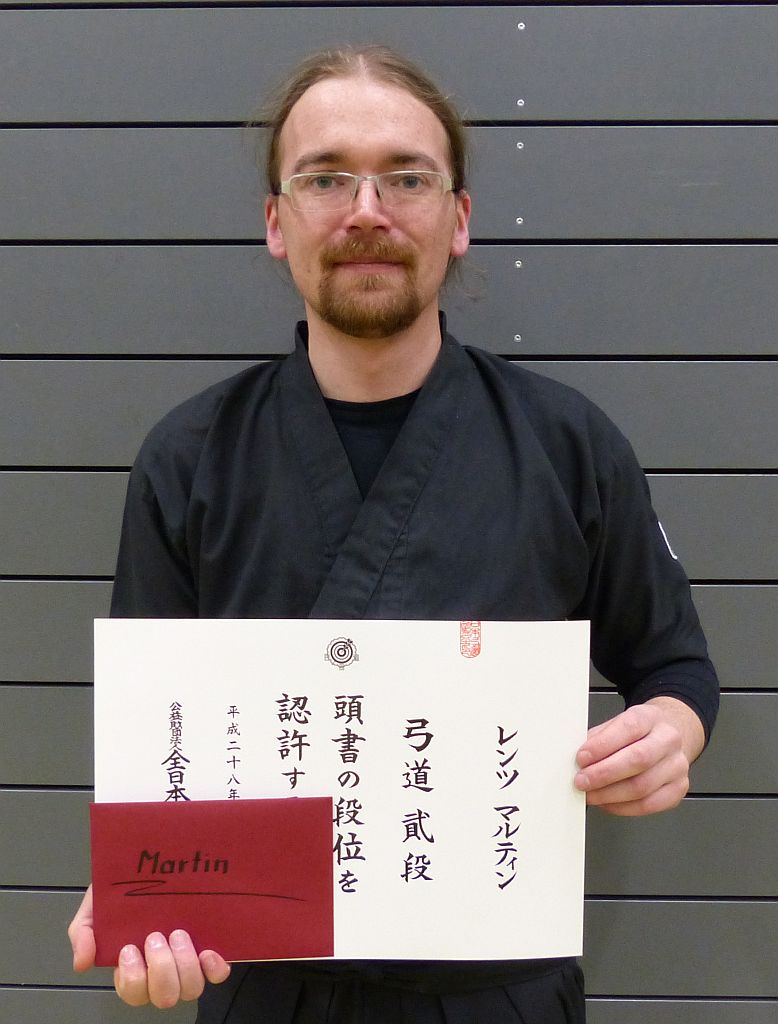 レンツ マルティン
弓道 貮段
頭書の段位を
認許す
平成二十八年
公益財団法人全日本
Martin